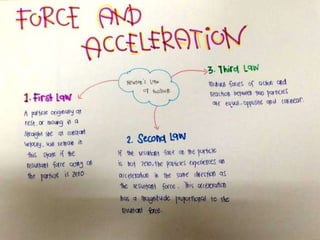 FORCE AND
ACCELERATION
Newton's Law
of motion
3. Third Law
Mutual forces of action and
reaction between two particles
are equal, opposite and collinear.
1. First Law
A particle originally at
rest, or moving in a
straight line at constant
velocity, will remain in
this state if the
resultant force acting on
the particle is zero
2. Second Law
If the resultant force on the particle
is not zero, the particle experiences an
acceleration in the same direction as
the resultant force. This acceleration
has a magnitude proportional to the
resultant force.